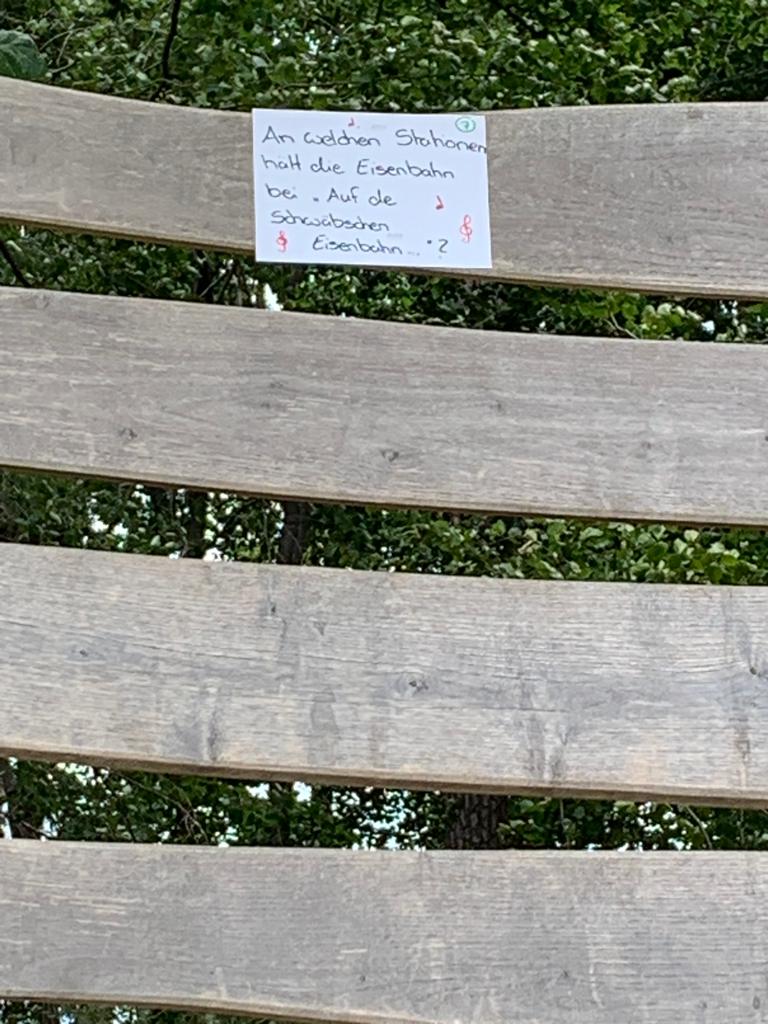 7
An welchen Stationen
hält die Eisenbahn
bei „Auf de
Schwäbschen
Eisenbahn..."?